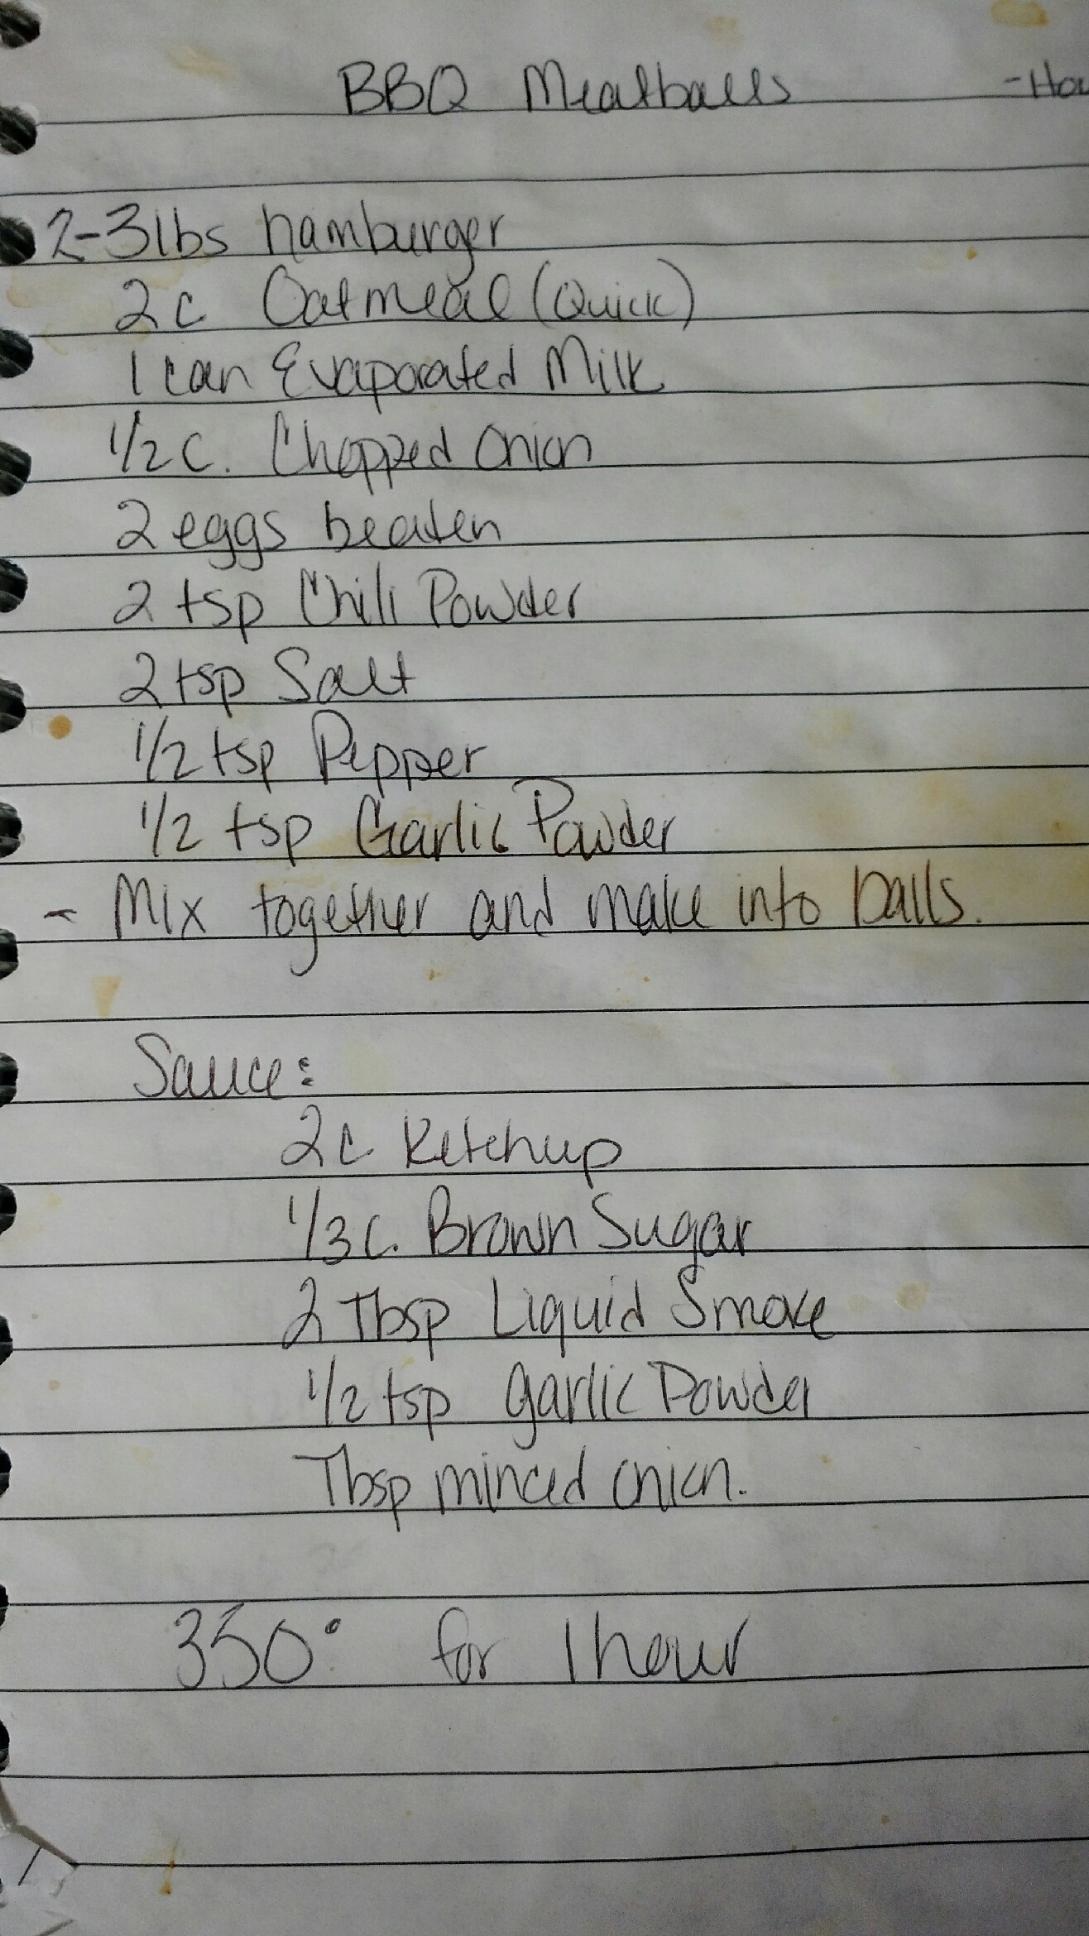 BBQ Meatballs
2-3lbs hamburger
2c Oatmeal (Quick)
1 can Evaporated Milk
1/2 c. Chopped Onion
2 eggs beaten
2 tsp Chili Powder
2 tsp Salt
1/2 tsp Pepper
1/2 tsp Garlic Powder
- Mix together and make into balls.
Sauce:
2c Ketchup
1/3 c. Brown Sugar
2 Tbsp Liquid Smoke
1/2 tsp garlic Powder
Tbsp minced onion.
350° for 1 hour